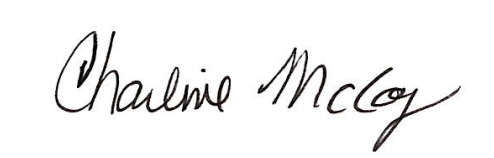 Charline McCoy